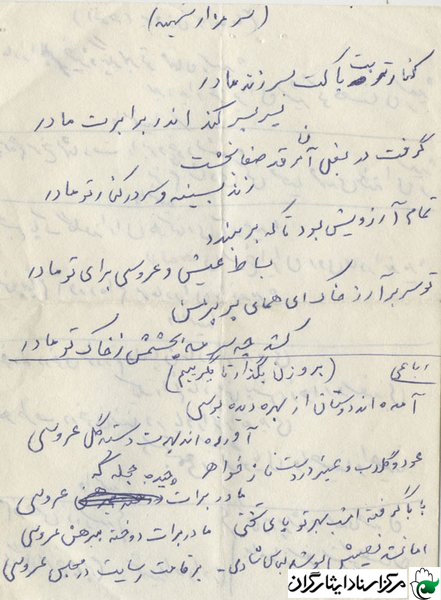 (سر مزار شهید)
کنار تربت پاکت بسر زند مادر
پسر پسر کند اندر برابرت مادر
گرفت در بغل آن قد صفا بخشت
زند بسینه و سر در کنار تو مادر
تمام آرزویش بود تا که بر بیند
بساط عیش و عروسی برای تو مادر
تو سر برآر ز خاک ای همای پر پرمن
کشد چه سرمه بچشمش ز خاک تو مادر
رباعی (بر وزن بگذار تا بگرییم)
آمده اند دوستان از بهر دیده بوسی
آورده اند بهرت دسته گل عروسی
عود و گلاب و عنبر در دست
مادر برات چیده حجله که عروسی
بابا گرفته امشب بهر تو پای تختی
مادر برات دوخته پیرهن عروسی
اما نشد نصیبش شادی - بر قامت رسایت در مجلس عروسی
مرکز اسناد ایثارگران